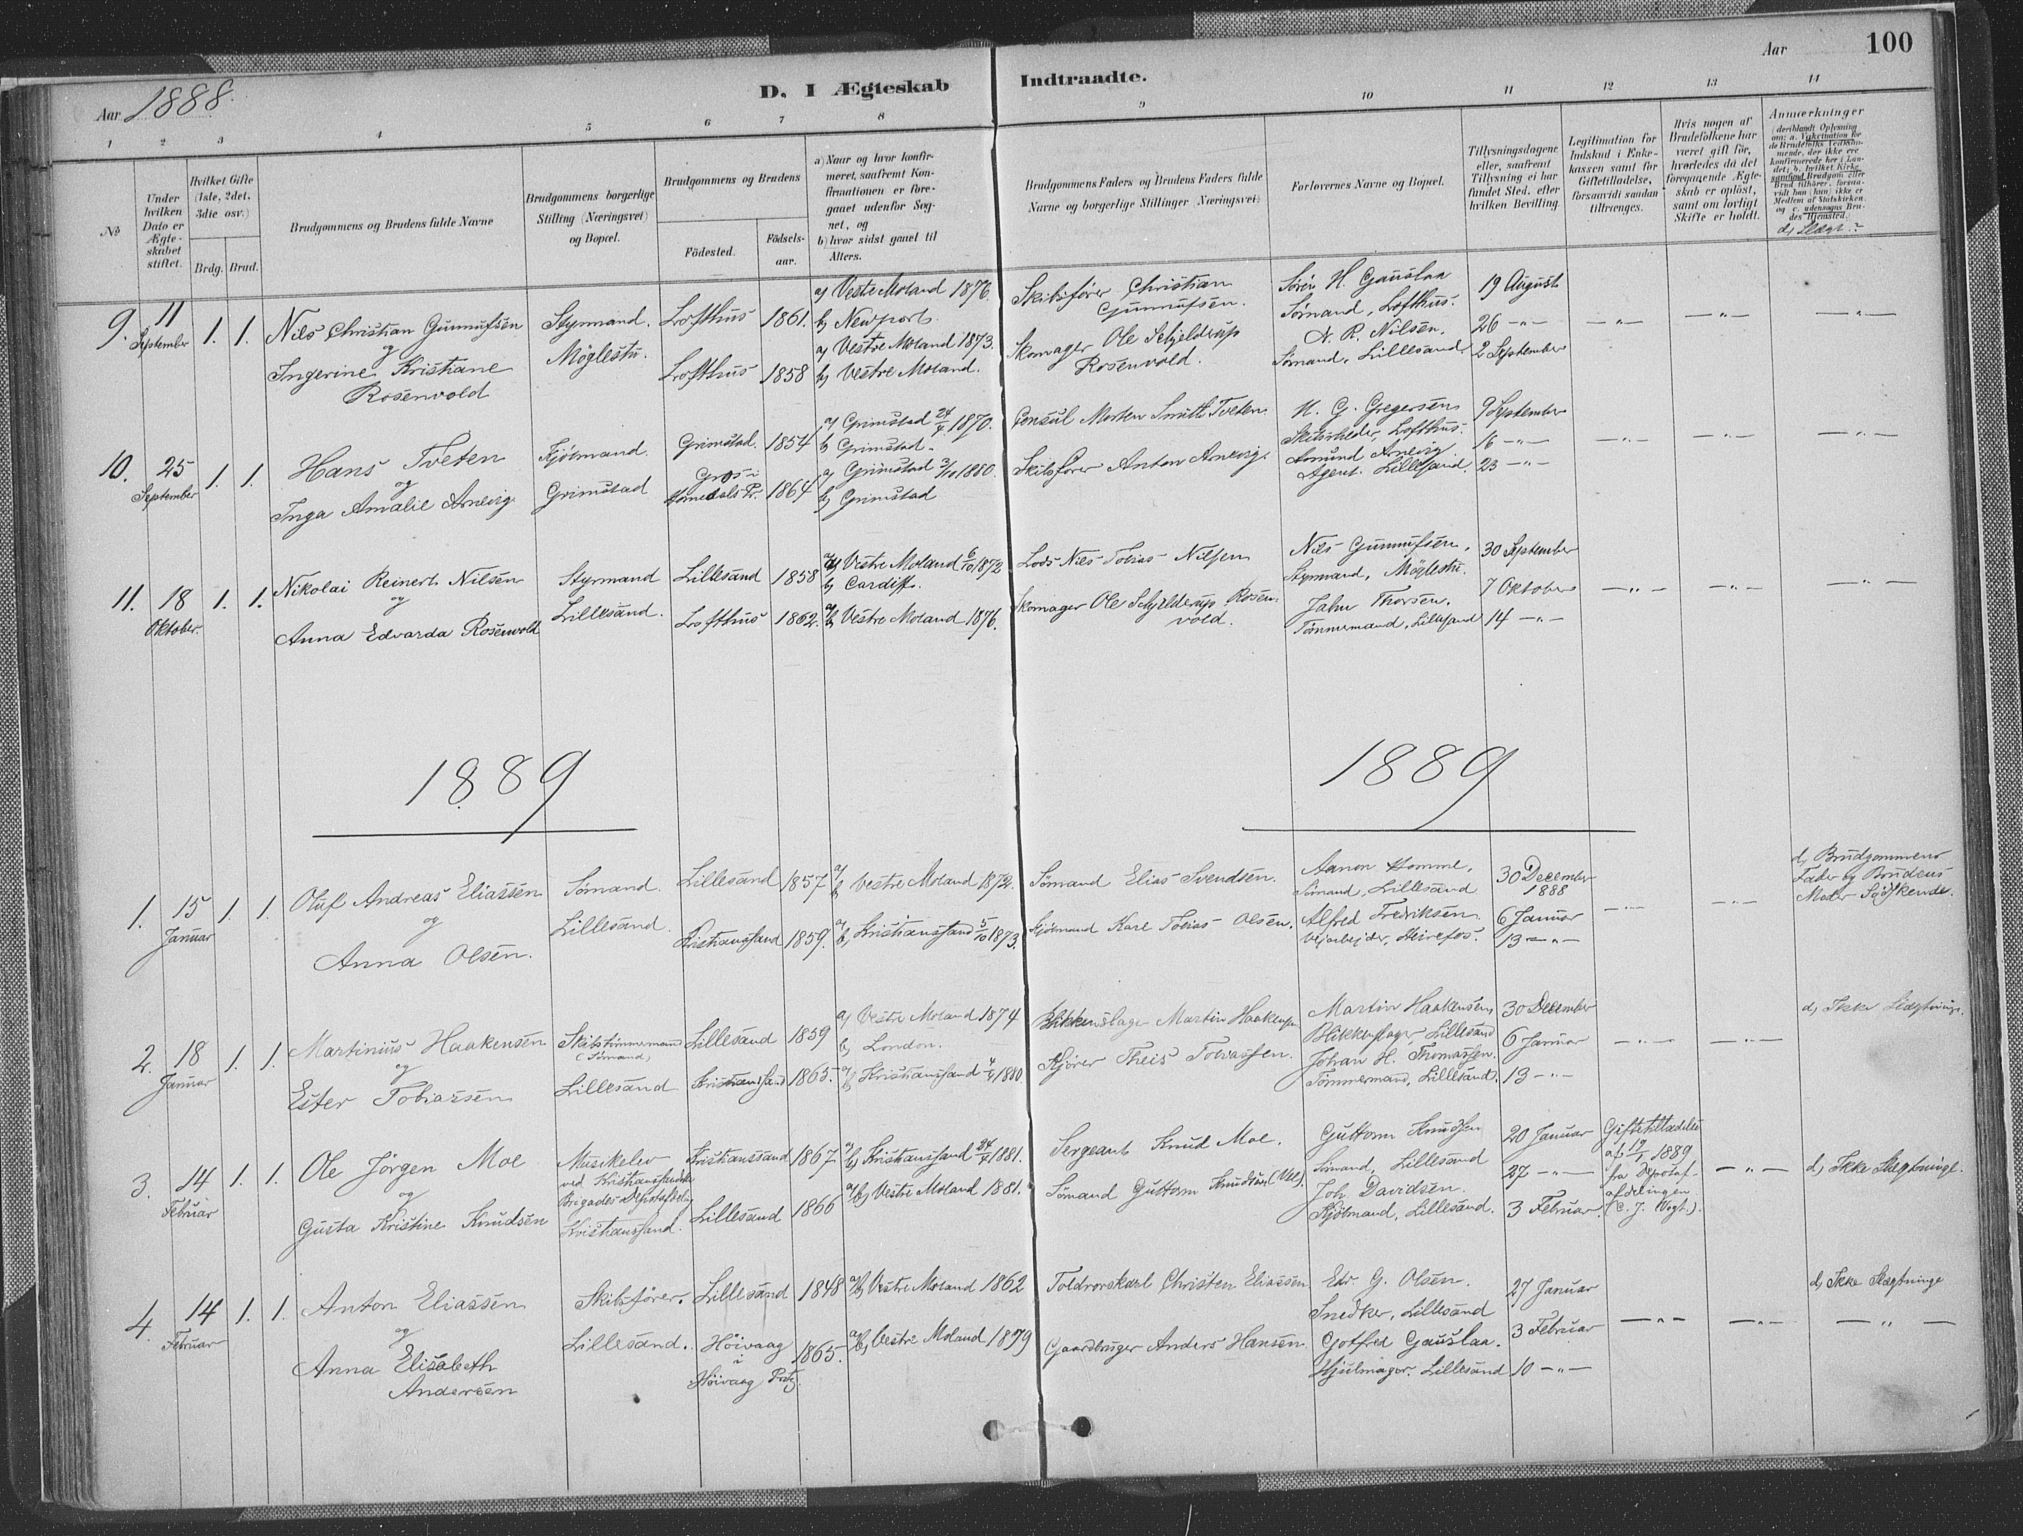 Aar 1888.
D. I Ægteskab Indtraadte.
Aar
100
1 2 3 4 5 6 7 8 9 10 11 12 13 14
No
Under hvilken Dato er Ægteskabet stiftet.
Hvilket Gifte (1ste, 2det, 3die osv.)
Brdg. Brud.
Brudgommens og Brudens fulde Navne
Brudgommens borgerlige Stilling (Næringsvei) og Bopæl.
Brudgommens og Brudens
Födested.
Födselsaar.
a) Naar og hvor konfirmeret, saafremt Konfirmationen er foregaaet udenfor Sognet, og
b) hvor sidst gaaet til Alters.
Brudgommens Faders og Brudens Faders fulde Navne og borgerlige Stillinger (Næringsvei)
Forlovernes Navne og Bopæl.
Tillysningsdagene eller, saafremt Tillysning ei har fundet Sted, efter hvilken Bevilling
Legitimation for Indskud i Enkekassen samt for Giftetilladelse, forsaavidt saadan tiltrænges.
Hvis nogen af Brudefolkene har været gift för, hvorledes da det foregaaende Ægteskab er oplöst, samt om lovligt Skifte er holdt.
Anmærkninger
(deriblandt Oplysning om: a. Vakcination for de Brudefolks Vedkommende, der ikke ere konfirmerede her i Landet; b. hvilket Kirkesamfund Brudgom eller Brud tilhörer, forsaavidt han (hun) ikke er Medlem af Statskirken. og c. udensogns Brudes Hjemsted.
d) Slægt.?
9. 11 September 1. 1. Nils Christian Gunnufsen Styrmand. Lofthus 1861. a) Vestre Moland 1876. Skibsfører Christian Gunnufsen. Sørin H. Gauslaa 19 August
og Møglestu. b) Newport. Sømand, Lofthus. 26 — " —
Ingerine Kristiane Rosenvold Lofthus 1858 a) Vestre Moland 1873. Skomager Ole Schjelderup Rosenvold. N. R. Nilsen. 2 September
b) Vestre Moland. Sømand, Lillesand.
10. 25 September 1. 1. Hans Tveten Kjøbmand. Grimstad. 1854 a) Grimstad 24/4 1870. Consul Morten Smith Tveten H. G. Gregersen 9 September
og Grimstad b) Grimstad. Skibsrheder, Lofthus. 16 — " —
Inga Amalie Arnevig 1864 a) Grimstad 1880. Skibsfører Anton Arnevig. Amund Arnevig 23 — " —
b) Grimstad Agent. Lillesand.
11. 18 Oktober. 1. 1. Nikolai Reinert Nilsen Styrmand Lillesand 1858 a) Vestre Moland 6/10 1872 Lods Nils Tobias Nilsen Nils Gunnufsen. 30 September
og Lillesand. b) Cardiff. Styrmand, Møglestu. 7 Oktober
Anna Edvarda Rosenvold Lofthus 1862. a) b) Vestre Moland 1876. Skomager Ole Schjelderup Rosenvold. Jahn Thorsen. 14 — " —
Tømmermand, Lillesand
1889 1889
1. 15 Januar 1. 1. Oluf Andreas Eliassen Sømand. Lillesand 1857 a) b) Vestre Moland 1872. Sømand Elias Svendsen. Aanon Homme, 30 December 1888 d) Brudgommens Fader og Brudens Moder Södskende.
og Lillesand. Sømand, Lillesand 6 Januar
Anna Olsen. Kristianssand 1859. a) b) Kristianssand 5/10 1873. Kjøbmand Karl Tobias Olsen. Alfred Fredriksen. 13 — " —
Veiarbejder, Heirefos.
2. 18 Januar 1. 1. Martinius Haakensen Skibstømmermand (Sømand) Lillesand 1859 a) Vestre Moland 1874 Blikkenslager Martin Haakensen Martin Haakensen 30 December d) Ikke Slægtninge.
og b) London. Blikkenslager, Lillesand 6 Januar
Ester Tobiassen Lillesand Kristianssand 1865. a) b) Kristianssand 4/4 1880 Kjører Theis Tobiassen. Johan H. Thomassen. 13 — " —
Tømmermand, Lillesand.
3. 14 Februar 1. 1. Ole Jørgen Moe Musikelev ved Kristianssandske Brigades Depotafdeling Kristianssand 1867. a) b) Kristianssand 1881. Sergeant Knud Moe. Guttorm Knudsen 20 Januar Giftetilladelse af 1889 fra Depotafdelingen (C. J. Vogt). d) Ikke Slægtninge.
og Kristianssand. Sømand, Lillesand 27 — " —
Gusta Kristine Knudsen Lillesand 1866 a) b) Vestre Moland 1881. Sømand Guttorm Knudsen Joh. Davidsen. 3 Februar.
Kjøbmand, Lillesand.
4. 14 Februar 1. 1. Anton Eliassen Skibsfører. Lillesand 1848 a) b) Vestre Moland 1862 Toldrorskarl Christen Eliassen Edv. G. Olsen. 27 Januar d) Ikke Slægtninge
og Lillesand. Snedker, Lillesand 3 Februar
Anna Elisabeth Andersen Höivaag i Höivaag Prstg. 1865. a) b) Vestre Moland 1879 Gaardbruger Anders Hansen Gotfred Gauslaa. 10 — " —
Hjulmager. Lillesand